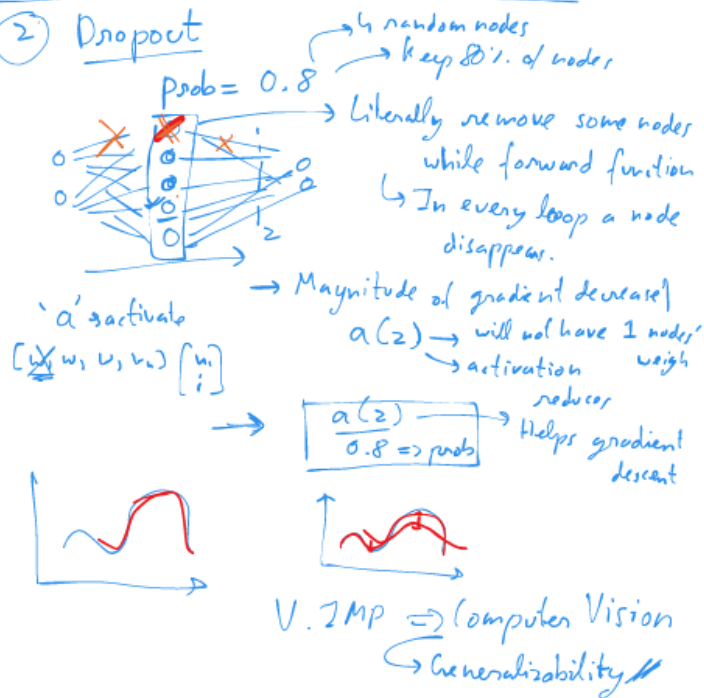 2) Dropout
prob = 0.8
→ 4 random nodes
→ keep 80% of nodes
→ Literally remove some nodes
while forward function
↳ In every loop a node
disappears.
→ Magnitude of gradient decreases
'a' → activate
a(2) → will not have 1 nodes'
weigh
→ activation
reduces
→ a(2)
0.8 => prob
→ Helps gradient
descent
V. IMP => Computer Vision
↳ Generalizability